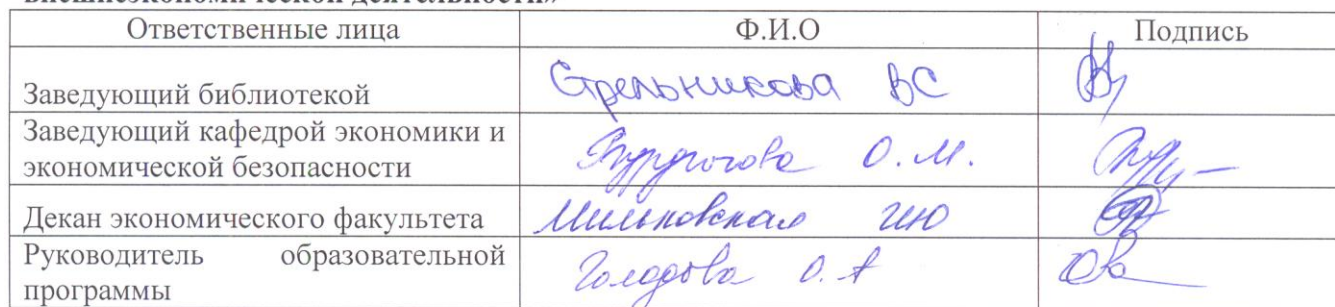 внешнеэкономической деятельности»
Ответственные лица Ф.И.О Подпись
Заведующий библиотекой Стрельникова ВС
Заведующий кафедрой экономики и
экономической безопасности О.М.
Декан экономического факультета Мильковская ИЮ
Руководитель образовательной
программы Голодова О.А